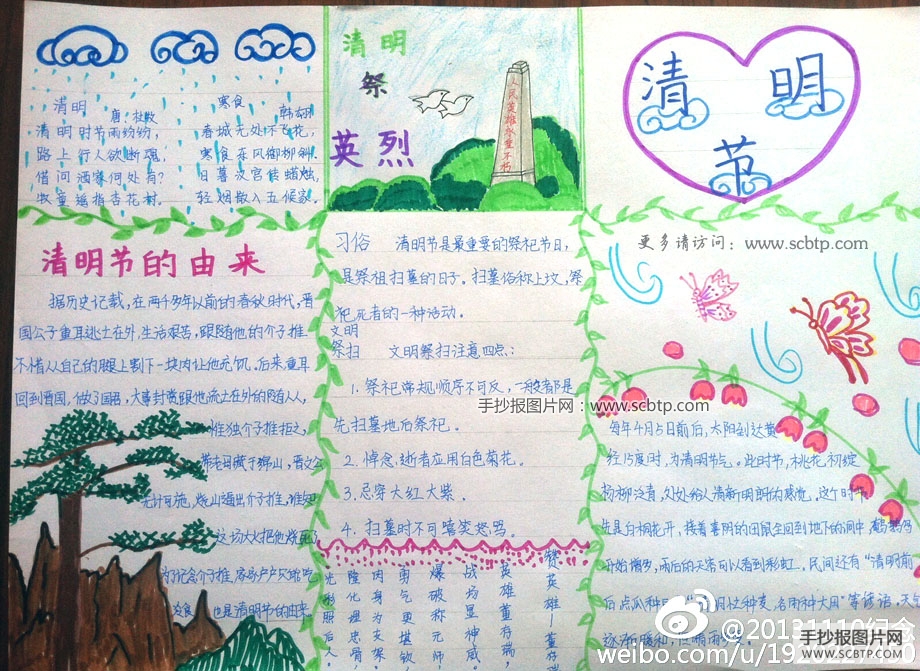 清明
唐·杜牧
清明时节雨纷纷,
路上行人欲断魂。
借问酒家何处有?
牧童遥指杏花村。
寒食
韩翃
春城无处不飞花,
寒食东风御柳斜.
日暮汉宫传蜡烛,
轻烟散入五候家.
清明
祭
英烈
人民英雄永垂不朽
清明
节
更多请访问:www.scbtp.com
清明节的由来
据历史记载,在两千多年以前的春秋时代,晋
国公子重耳逃亡在外,生活艰苦,跟随他的介子推
不惜从自己的腿上割下一块肉让他充饥.后来,重耳
回到晋国,做了国君,大事封赏跟他流亡在外的随人,
惟独介子推拒之,
带老母藏于绵山,晋文公
无计可施,烧山逼出介子推,谁知
这场大火把他烧死了
为纪念介子推,家家户户只能吃
寒食,也是清明节的由来
习俗 清明节是最重要的祭祀节日,
是祭祖扫墓的日子。扫墓俗称上坟,祭
祀死者的一种活动。
文明
祭扫 文明祭扫注意四点:
1.祭祀常规顺序不可反,一般都是
先扫墓地后祭祀。
手抄报图片网:www.scbtp.com
2.悼念逝者应用白色菊花。
3.忌穿大红大紫。
4.扫墓时不可嘻笑怒骂。
赞英雄—董存瑞
英雄董存瑞
战场显神威
爆破称元帅
勇气更堪钦
肉身为支架
隆化忠骨
光彩照后人
每年4月5日前后,太阳到达黄
经15度时,为清明节气。此时节,桃花初绽
杨柳泛青,处处给人清新明朗的感觉,这个时节
先是白桐花开,接着喜阴的田鼠全回到地下的洞中
开始增多,雨后的天空可以看到彩虹。民间还有“清明前
后点瓜种豆”“ 明忙种麦,名雨种大田”等谚语,天气
逐渐暖和
@20131110纪念
weibo.com/u/19
手抄报图片网
WWW.SCBTP.COM